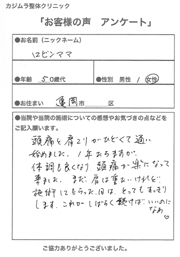 カジムラ整体クリニック
「お客様の声　アンケート」
●お名前(ニックネーム)
ロビンママ
●年齢　50歳代
●性別　男性・女性
●お住まい　亀岡市　区
●当院や当院の施術についての感想やお気づきの点などを
ご記入願います。
頭痛と肩こりがひどくて通い
始めました。1年たちますが、
体調も良くなり頭痛が楽になって
来ました。まだ肩は重いけれど
施術してもらった日は、とってもすっきり
します。これがしばらく続けばいいのに
なぁ♡
ご協力ありがとうございました。